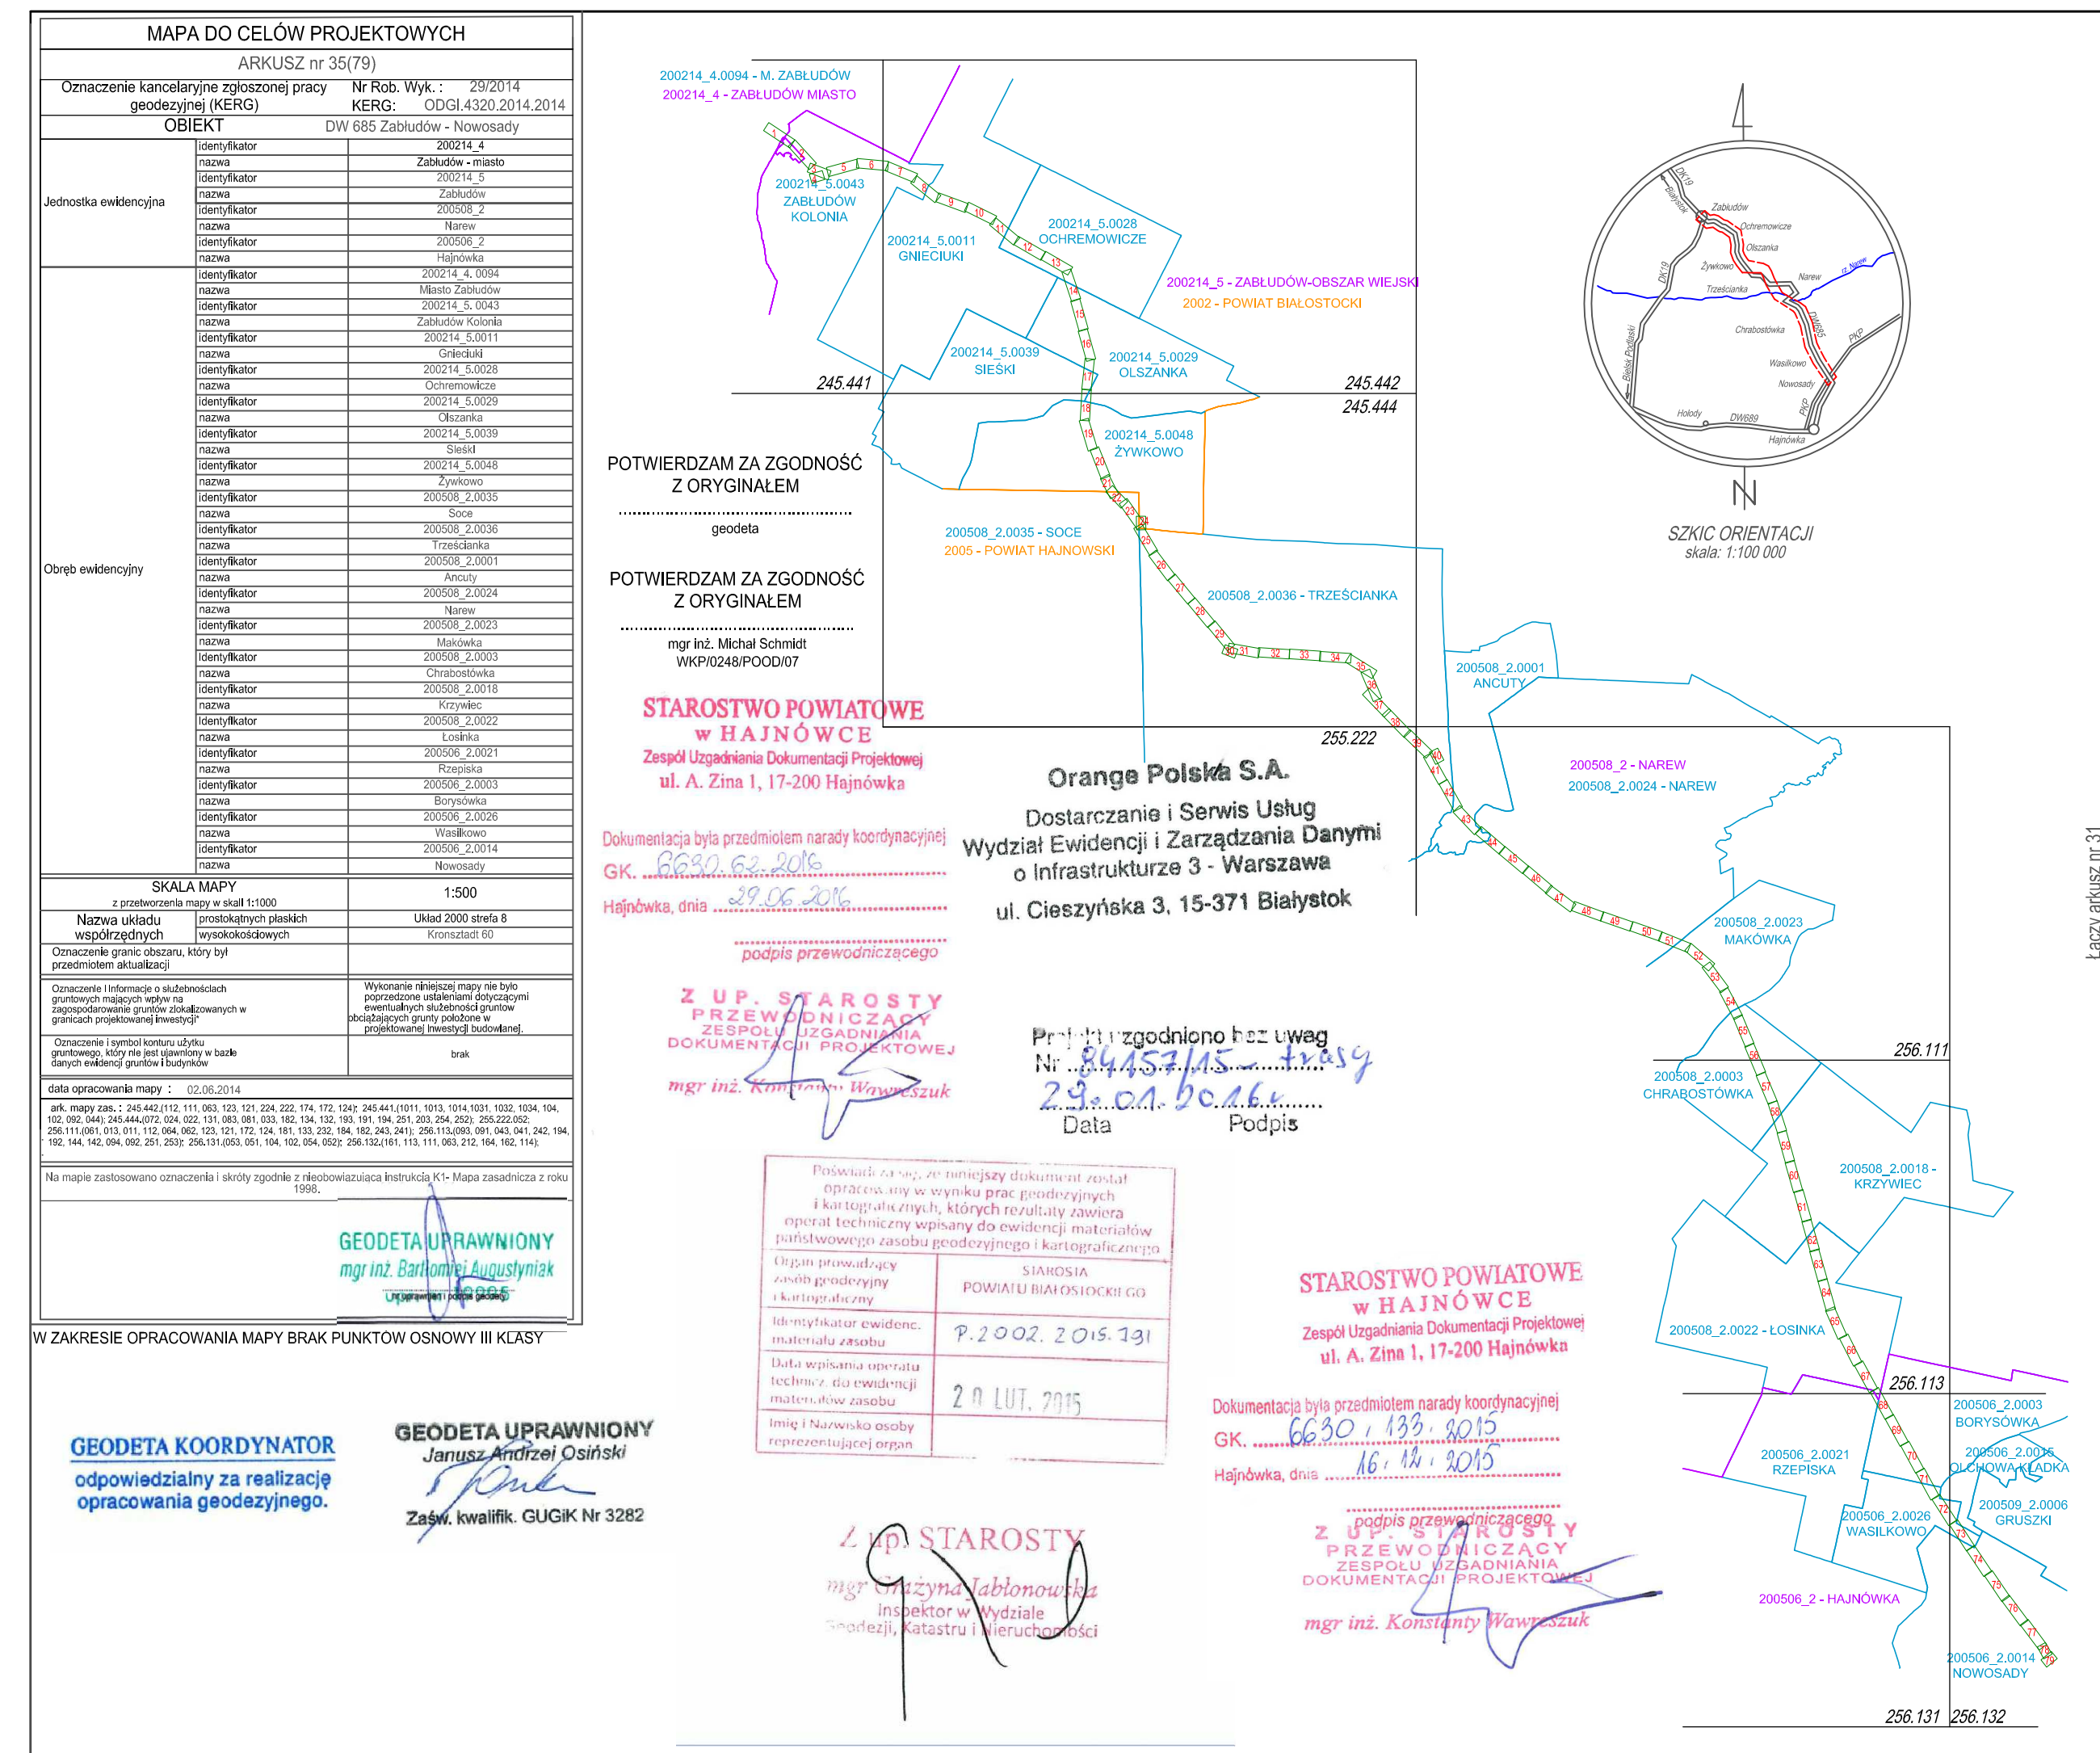 MAPA DO CELÓW PROJEKTOWYCH
ARKUSZ nr 35(79)
Oznaczenie kancelaryjne zgłoszonej pracy
geodezyjnej (KERG)
Nr Rob. Wyk. : 29/2014
KERG: ODGI.4320.2014.2014
OBIEKT DW 685 Zabłudów - Nowosady
Jednostka ewidencyjna
identyfikator 200214_4
nazwa Zabłudów - miasto
identyfikator 200214_5
nazwa Zabłudów
identyfikator 200508_2
nazwa Narew
identyfikator 200506_2
nazwa Hajnówka
Obręb ewidencyjny
identyfikator 200214_4. 0094
nazwa Miasto Zabłudów
identyfikator 200214_5. 0043
nazwa Zabłudów Kolonia
identyfikator 200214_5.0011
nazwa Gnieciuki
identyfikator 200214_5.0028
nazwa Ochremowicze
identyfikator 200214_5.0029
nazwa Olszanka
identyfikator 200214_5.0039
nazwa Sieśki
identyfikator 200214_5.0048
nazwa Żywkowo
identyfikator 200508_2.0035
nazwa Soce
identyfikator 200508_2.0036
nazwa Trześcianka
identyfikator 200508_2.0001
nazwa Ancuty
identyfikator 200508_2.0024
nazwa Narew
identyfikator 200508_2.0023
nazwa Makówka
identyfikator 200508_2.0003
nazwa Chrabostówka
identyfikator 200508_2.0018
nazwa Krzywiec
identyfikator 200508_2.0022
nazwa Łosinka
identyfikator 200506_2.0021
nazwa Rzepiska
identyfikator 200506_2.0003
nazwa Borysówka
identyfikator 200506_2.0026
nazwa Wasilkowo
identyfikator 200506_2.0014
nazwa Nowosady
SKALA MAPY
z przetworzenia mapy w skali 1:1000
1:500
Nazwa układu
współrzędnych
prostokątnych płaskich Układ 2000 strefa 8
wysokościowych Kronsztadt 60
Oznaczenie granic obszaru, który był
przedmiotem aktualizacji
Oznaczenie i Informacje o służebnościach
gruntowych mających wpływ na
zagospodarowanie gruntów zlokalizowanych w
granicach projektowanej inwestycji*
Wykonanie niniejszej mapy nie było
poprzedzone ustaleniami dotyczącymi
ewentualnych służebności gruntów
obciążających grunty położone w
projektowanej inwestycji budowlanej.
Oznaczenie i symbol konturu użytku
gruntowego, który nie jest ujawniony w bazie
danych ewidencji gruntów i budynków
brak
data opracowania mapy : 02.06.2014
ark. mapy zas. : 245.442.(112, 111, 063, 123, 121, 224, 222, 174, 172, 124); 245.441.(1011, 1013, 1014,1031, 1032, 1034, 104,
102, 092, 044); 245.444.(072, 024, 022, 131, 083, 081, 033, 182, 134, 132, 193, 191, 194, 251, 203, 254, 252); 255.222.052;
256.111.(061, 013, 011, 112, 064, 062, 123, 121, 172, 124, 181, 133, 232, 184, 182, 243, 241); 256.113.(093, 091, 043, 041, 242, 194,
192, 144, 142, 094, 092, 251, 253); 256.131.(053, 051, 104, 102, 054, 052); 256.132.(161, 113, 111, 063, 212, 164, 162, 114);
Na mapie zastosowano oznaczenia i skróty zgodnie z nieobowiazująca instrukcja K1- Mapa zasadnicza z roku
1998.
GEODETA UPRAWNIONY
mgr inż. Bartłomiej Augustyniak
nr uprawnień i podpis geodety
W ZAKRESIE OPRACOWANIA MAPY BRAK PUNKTÓW OSNOWY III KLASY
GEODETA KOORDYNATOR
odpowiedzialny za realizację
opracowania geodezyjnego.
GEODETA UPRAWNIONY
Janusz Andrzej Osiński
Zaśw. kwalifik. GUGiK Nr 3282
POTWIERDZAM ZA ZGODNOŚĆ
Z ORYGINAŁEM
geodeta
POTWIERDZAM ZA ZGODNOŚĆ
Z ORYGINAŁEM
mgr inż. Michał Schmidt
WKP/0248/POOD/07
STAROSTWO POWIATOWE
w HAJNÓWCE
Zespół Uzgadniania Dokumentacji Projektowej
ul. A. Zina 1, 17-200 Hajnówka
Dokumentacja była przedmiotem narady koordynacyjnej
GK. 6630.62.2016
Hajnówka, dnia 29.06.2016
podpis przewodniczącego
Z UP. STAROSTY
PRZEWODNICZĄCY
ZESPOŁU UZGADNIANIA
DOKUMENTACJI PROJEKTOWEJ
mgr inż. Konstanty Wawreszuk
Orange Polska S.A.
Dostarczanie i Serwis Usług
Wydział Ewidencji i Zarządzania Danymi
o Infrastrukturze 3 - Warszawa
ul. Cieszyńska 3, 15-371 Białystok
Projekt uzgodniono bez uwag
Nr 84157/15 - trasy
29.01.2016r
Data Podpis
Poświadcza się, że niniejszy dokument został
opracowany w wyniku prac geodezyjnych
i kartograficznych, których rezultaty zawiera
operat techniczny wpisany do ewidencji materiałów
państwowego zasobu geodezyjnego i kartograficznego
Organ prowadzący
zasób geodezyjny
i kartograficzny
STAROSTA
POWIATU BIAŁOSTOCKIEGO
Identyfikator ewidenc.
materiału zasobu
P.2002.2015.791
Data wpisania operatu
technicz. do ewidencji
materiałów zasobu
20 LUT. 2015
Imię i Nazwisko osoby
reprezentującej organ
Z up. STAROSTY
mgr Grażyna Jabłonowska
Inspektor w Wydziale
Geodezji, Katastru i Nieruchomości
STAROSTWO POWIATOWE
w HAJNÓWCE
Zespół Uzgadniania Dokumentacji Projektowej
ul. A. Zina 1, 17-200 Hajnówka
Dokumentacja była przedmiotem narady koordynacyjnej
GK. 6630.133.2015
Hajnówka, dnia 16.12.2015
podpis przewodniczącego
Z UP. STAROSTY
PRZEWODNICZĄCY
ZESPOŁU UZGADNIANIA
DOKUMENTACJI PROJEKTOWEJ
mgr inż. Konstanty Wawreszuk
200214_4.0094 - M. ZABŁUDÓW
200214_4 - ZABŁUDÓW MIASTO
200214_5.0043
ZABŁUDÓW
KOLONIA
200214_5.0011
GNIECIUKI
200214_5.0028
OCHREMOWICZE
200214_5 - ZABŁUDÓW-OBSZAR WIEJSKI
2002 - POWIAT BIAŁOSTOCKI
200214_5.0039
SIEŚKI
200214_5.0029
OLSZANKA
245.441
245.442
245.444
200214_5.0048
ŻYWKOWO
200508_2.0035 - SOCE
2005 - POWIAT HAJNOWSKI
200508_2.0036 - TRZEŚCIANKA
200508_2.0001
ANCUTY
255.222
200508_2 - NAREW
200508_2.0024 - NAREW
200508_2.0023
MAKÓWKA
256.111
200508_2.0003
CHRABOSTÓWKA
200508_2.0018 -
KRZYWIEC
200508_2.0022 - ŁOSINKA
256.113
200506_2.0003
BORYSÓWKA
200506_2.0021
RZEPISKA
200506_2.0015
OLCHOWA KŁADKA
200509_2.0006
GRUSZKI
200506_2.0026
WASILKOWO
200506_2 - HAJNÓWKA
200506_2.0014
NOWOSADY
256.131 256.132
DK19
Białystok
Zabłudów
Ochremowicze
Olszanka
Żywkowo
Narew
rz. Narew
Trześcianka
DK19
Chrabostówka
DW685
PKP
Wasilkowo
Nowosady
Bielsk Podlaski
PKP
Hołody
DW689
Hajnówka
N
SZKIC ORIENTACJI
skala: 1:100 000
Łączy arkusz nr 31